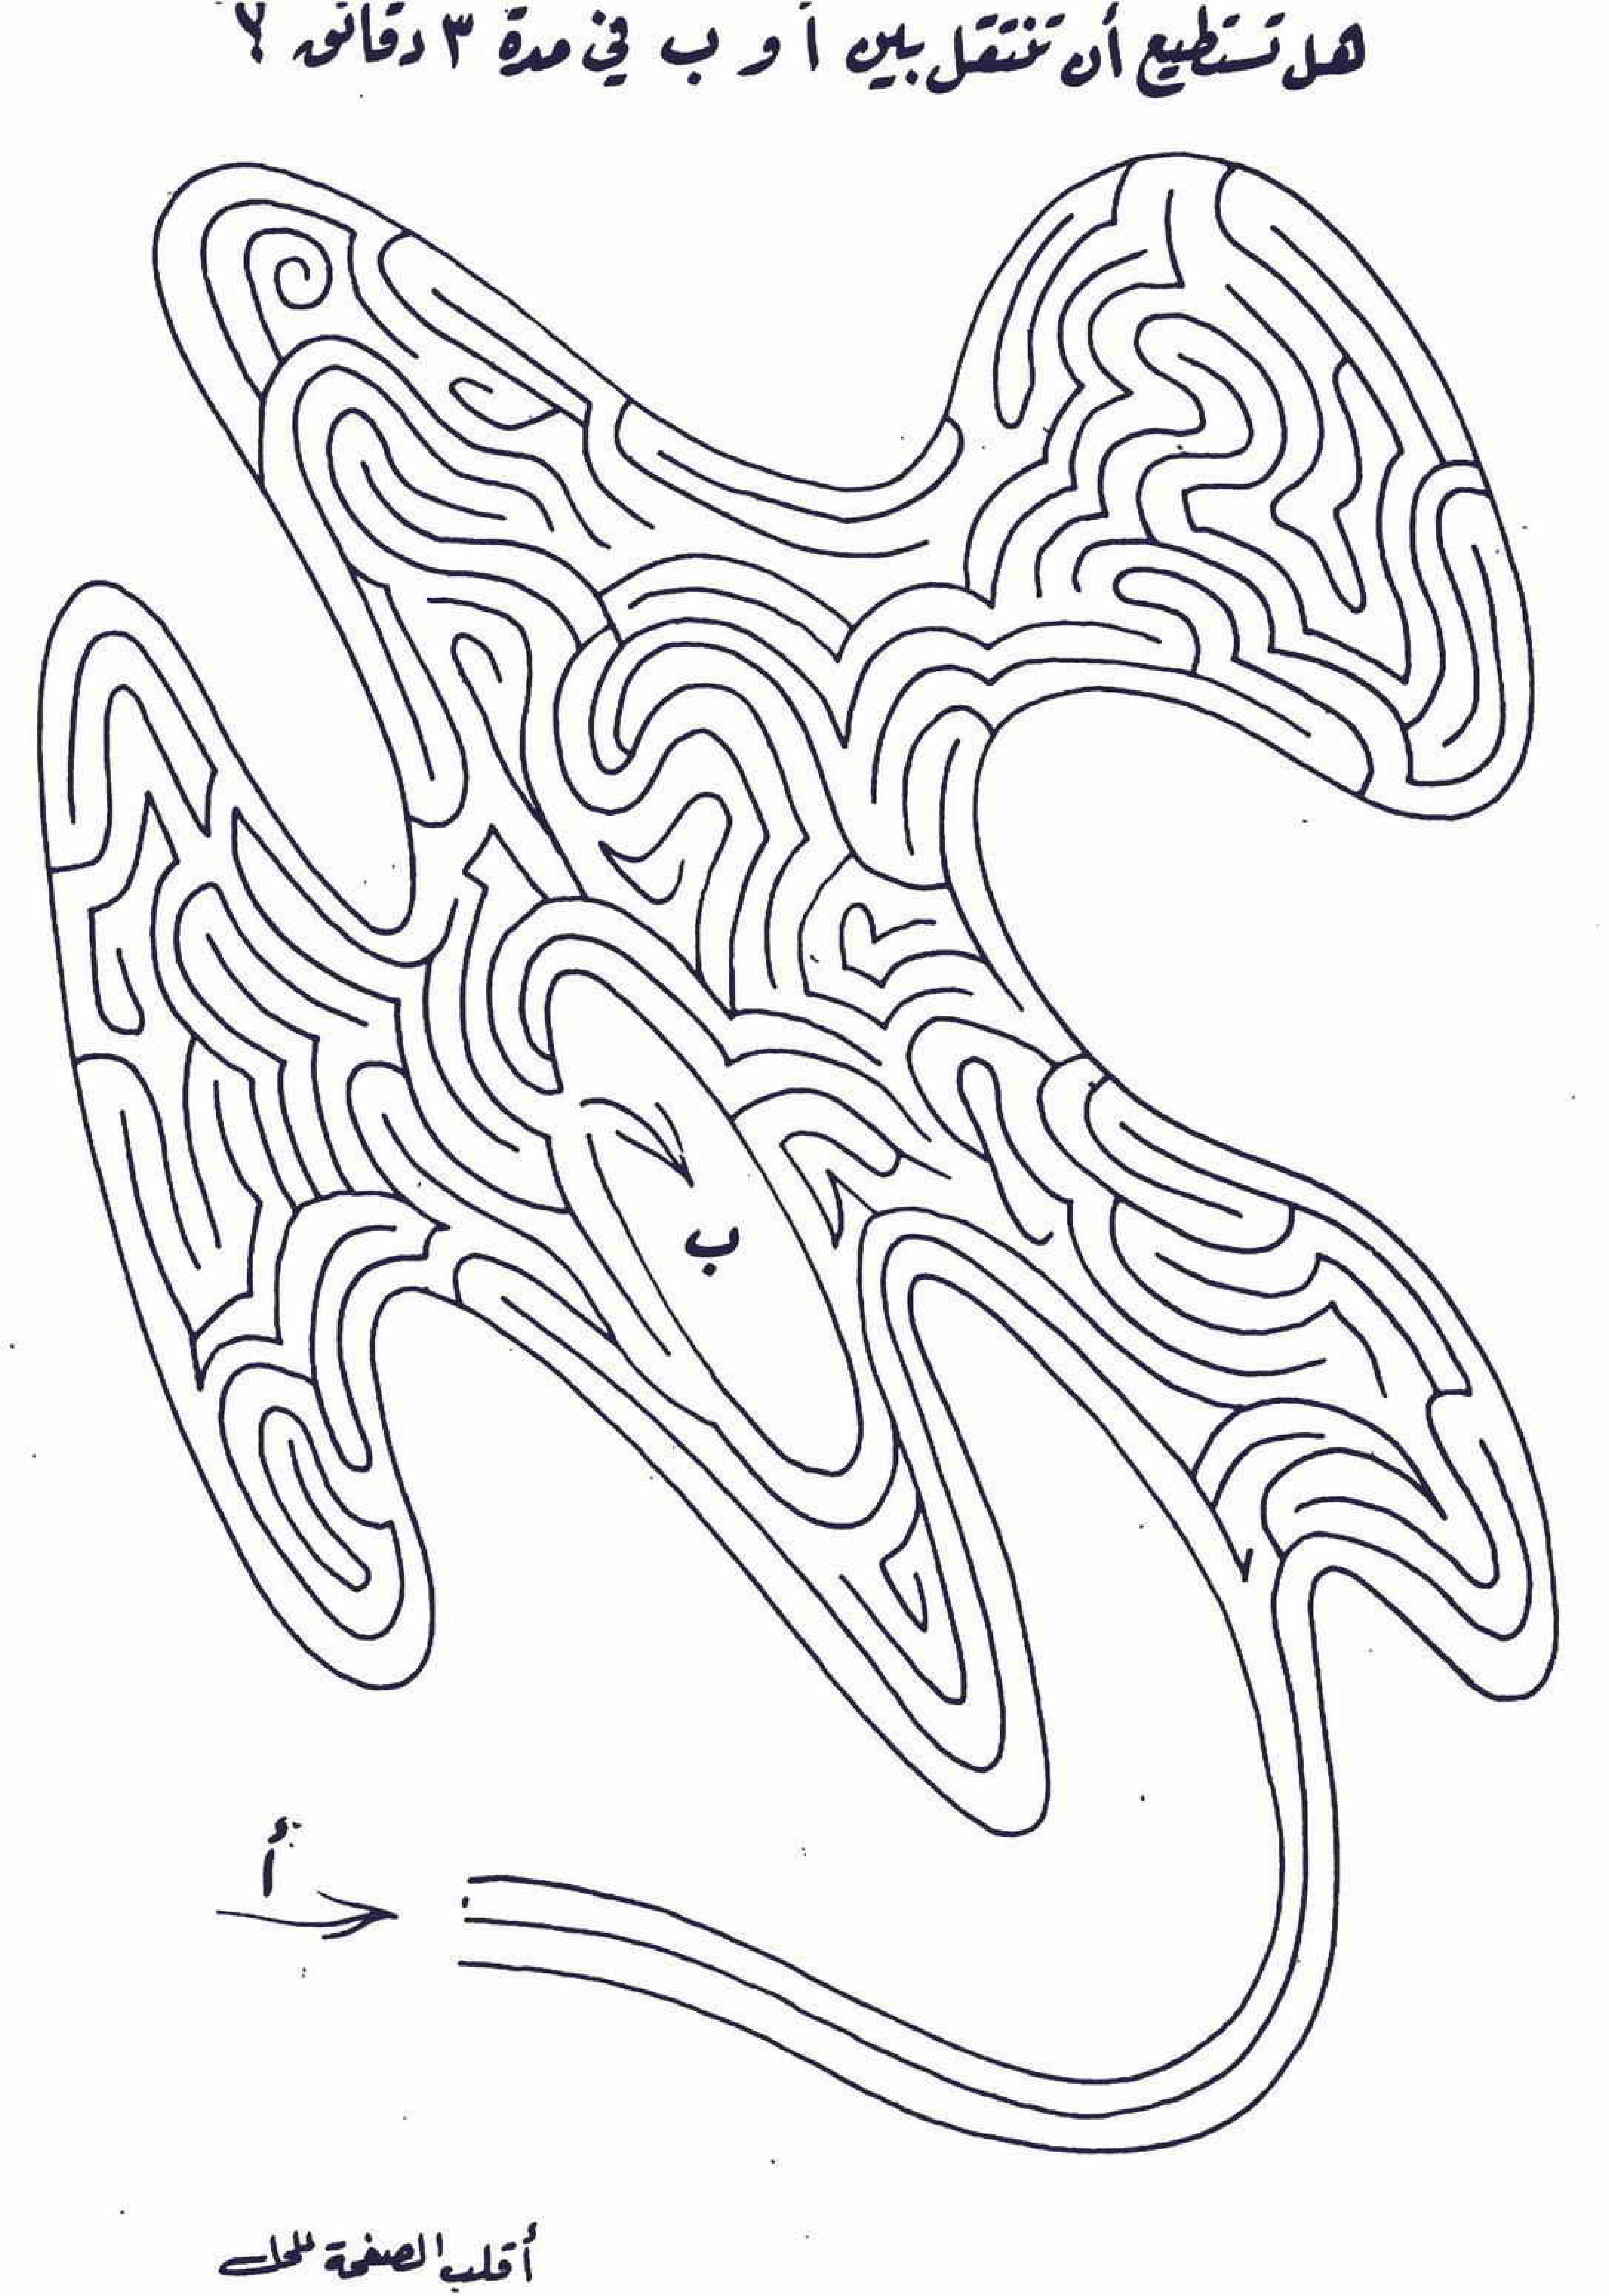 هل تستطيع أن تنتقل بين أ و ب في مدة ٣ دقائق ؟
ب
أ
أقلب الصفحة للحل